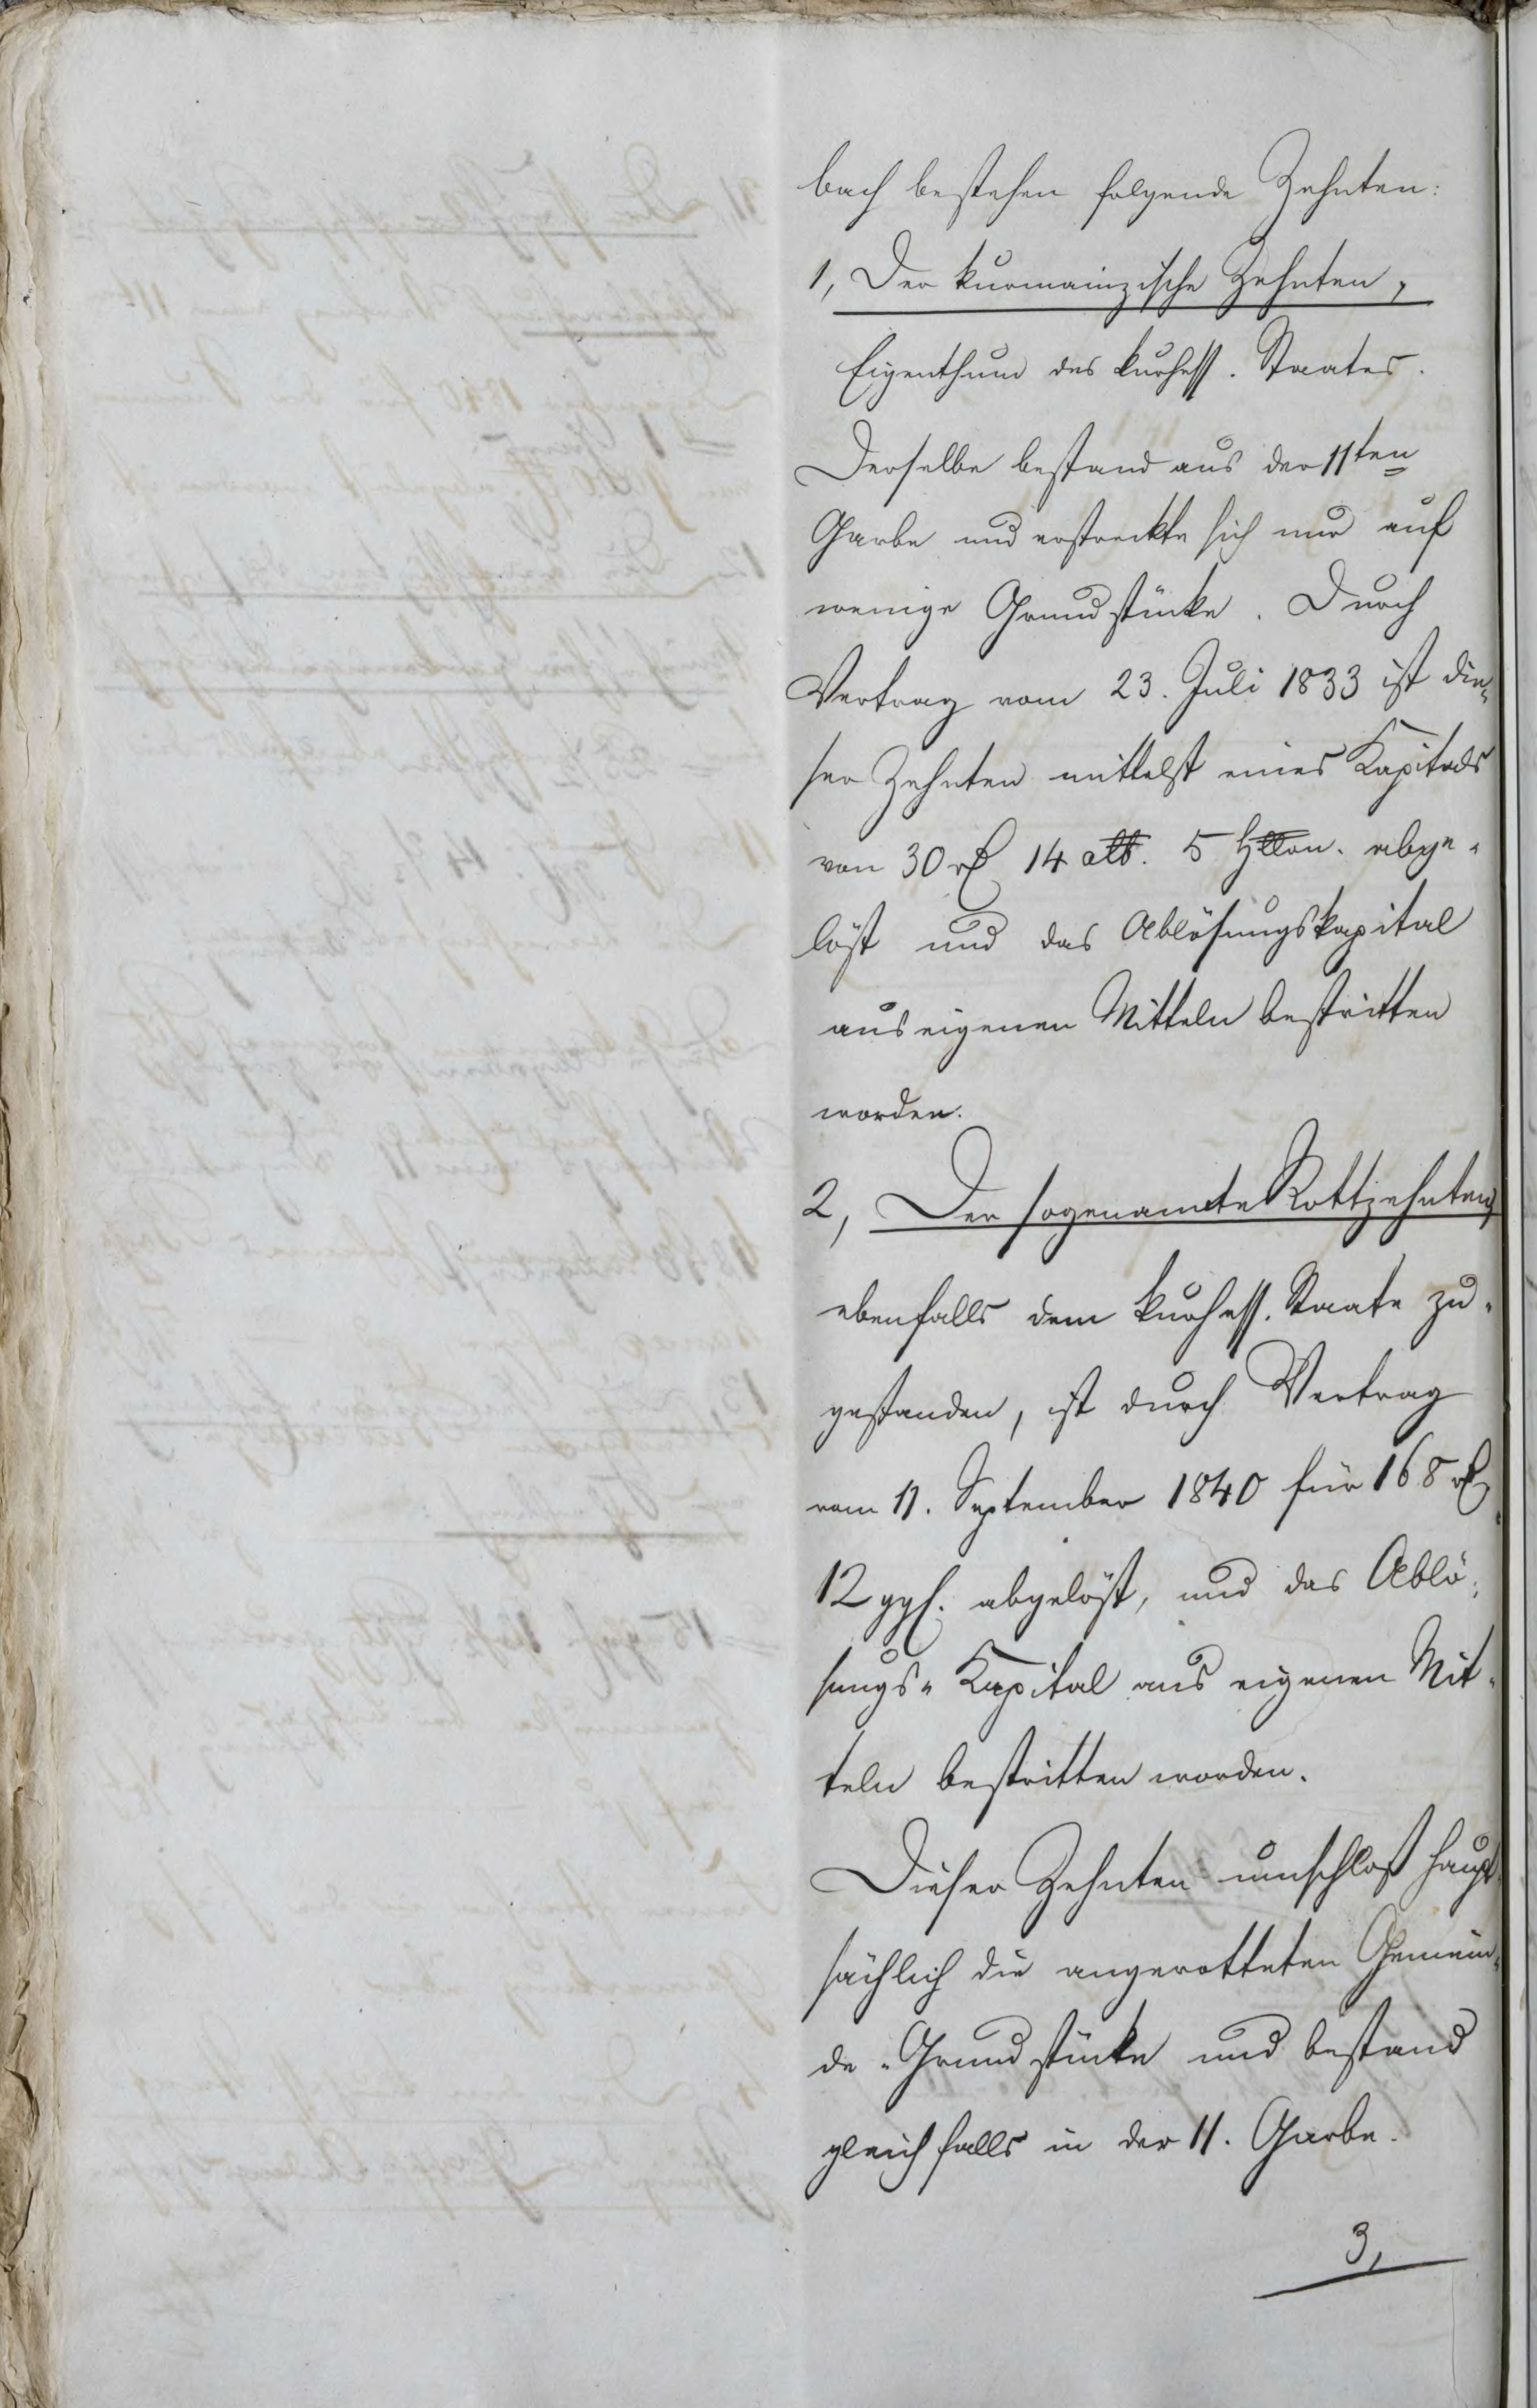 bach bestehen folgende Zehnten:
1, Der kurmainzische Zehnten,
Eigenthum des kurhess. Staates.
Derselbe bestand aus der 11ten
Garbe und erstreckte sich nur auf
wenige Grundstücke. Durch
Vertrag vom 23. Juli 1833 ist die-
ser Zehnten mittelst eines Kapitals
von 30 rℓ 14 alb. 5 Hllr. abge-
löst und das Ablösungskapital
aus eigenen Mitteln bestritten
worden.
2, Der sogenannte Rottzehnten,
ebenfalls dem kurhess. Staate zu-
gestanden, ist durch Vertrag
vom 11. September 1840 für 168 rℓ
12 ggl. abgelöst, und das Ablö-
sungs-Kapital aus eigenen Mit-
teln bestritten worden.
Dieser Zehnten umschloß haupt-
sächlich die angerotteten Gemein-
de-Grundstücke und bestand
gleichfalls in der 11. Garbe.
3,